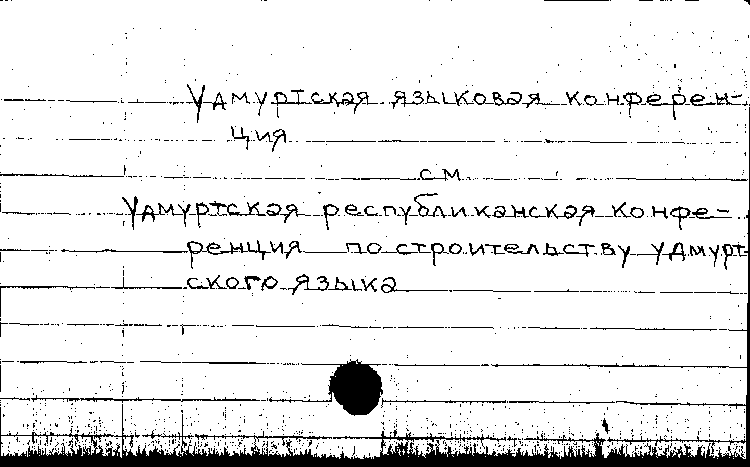 Удмуртская языковая конферен-
ция
см
Удмуртская республиканская конфе-
ренция по строительству удмурт
ского языка